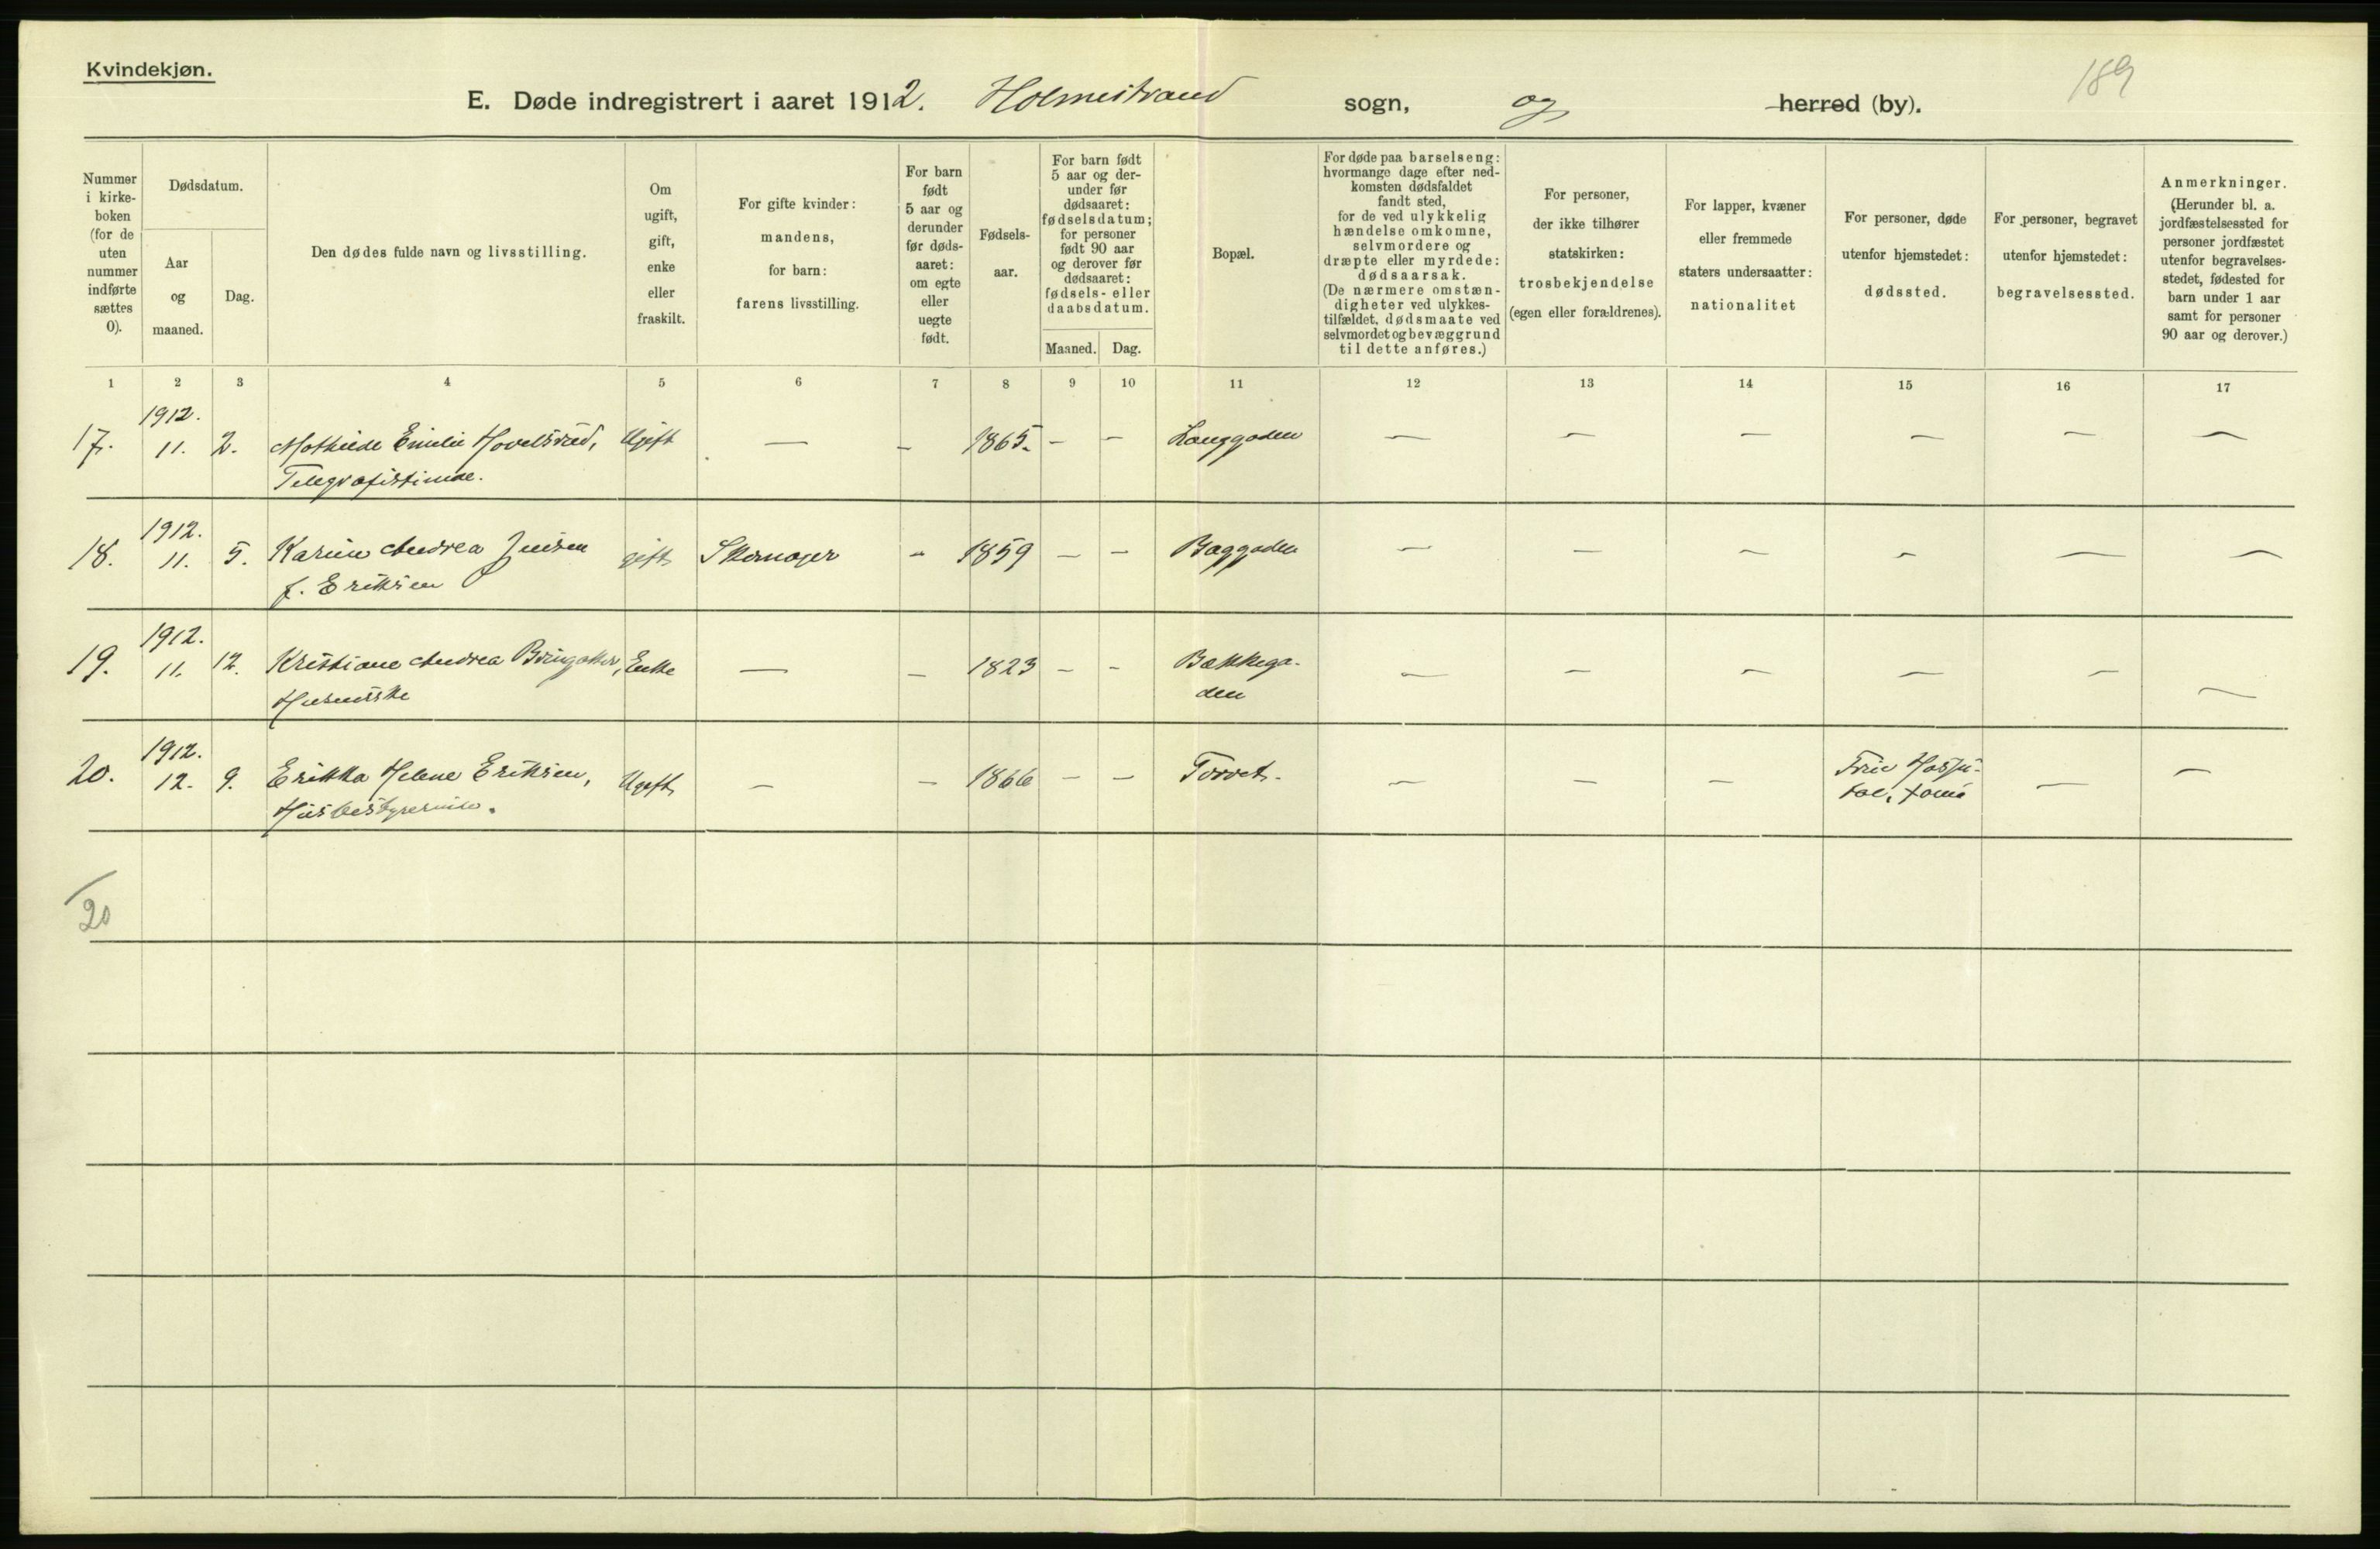 Kvindekjøn.
189
E. Døde indregistrert i aaret 1912. Holmestrand sogn, og herred (by).
Nummer i kirkeboken (for de uten nummer indførte sættes 0).
Dødsdatum.
Aar og maaned.
Dag.
Den dødes fulde navn og livsstilling.
Om ugift, gift, enke eller fraskilt.
For gifte kvinder: mandens, for barn: farens livsstilling.
For barn født 5 aar og derunder før dødsaaret: om egte eller uegte født.
Fødselsaar.
For barn født 5 aar og derunder før dødsaaret: fødselsdatum; for personer født 90 aar og derover før dødsaaret: fødsels- eller daabsdatum.
Maaned.
Dag.
Bopæl.
For døde paa barselseng: hvormange dage efter nedkomsten dødsfaldet fandt sted, for de ved ulykkelig hændelse omkomne, selvmordere og dræpte eller myrdede: dødsaarsak. (De nærmere omstændigheter ved ulykkestilfældet, dødsmaate ved selvmordet og bevæggrund til dette anføres.)
For personer, der ikke tilhører statskirken: trosbekjendelse (egen eller forældrenes).
For lapper, kvæner eller fremmede staters undersaatter: nationalitet
For personer, døde utenfor hjemstedet: dødssted.
For personer, begravet utenfor hjemstedet: begravelsessted.
Anmerkninger. (Herunder bl. a. jordfæstelsessted for personer jordfæstet utenfor begravelsesstedet, fødested for barn under 1 aar samt for personer 90 aar og derover.)
1 2 3 4 5 6 7 8 9 10 11 12 13 14 15 16 17
1912.
17. 11. 2. Mathilde Emilie Hovelsrud, Ugift — – 1865. – – Langgaden — — — — — —
Telegrafistinde.
1912.
18. 11. 5. Karine Andrea Jensen gift Skomager – 1859 – – Baggaden — — — — — —
f. Eriksen
1912.
19. 11. 12. Kristiane Andrea Bringaker, Enke — – 1823 – – Bakkega-
den — — — — — —
1912.
20. 12. 9. Erikka Helene Eriksen, Ugift – – 1866 – – Torvet. — — — Fric Hospi-
Husbestyrerinde. — —
20